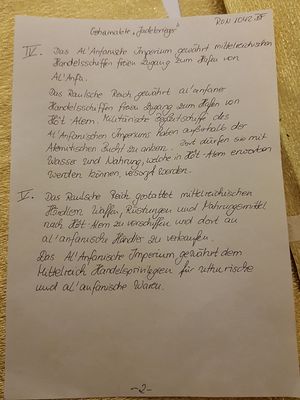 Geheimakte "Jadekrieger"
IV. Das Al'Anfanische Imperium gewährt mittelreichischen
Handelsschiffen freien Zugang zum Hafen von
Al'Anfa.
Das Raulsche Reich gewährt al'anfaner
Handelsschiffen freien Zugang zum Hafen von
Hôt-Alem. Militärische Begleitschiffe des
Al'Anfanischen Imperiums haben außerhalb der
Alemitischen Bucht zu ankern. Dort dürfen sie mit
Wasser und Nahrung, welche in Hôt-Alem erworben
werden können, versorgt werden.
V. Das Raulsche Reich gestattet mittelreichischen
Händlern Waffen, Rüstungen und Nahrungsmittel
nach Hôt-Alem zu verschiffen und dort an
al'anfanische Händler zu verkaufen.
Das Al'Anfanische Imperium gewährt dem
Mittelreich Handelsprivilegien für uthurische
und al'anfanische Waren.
-2-